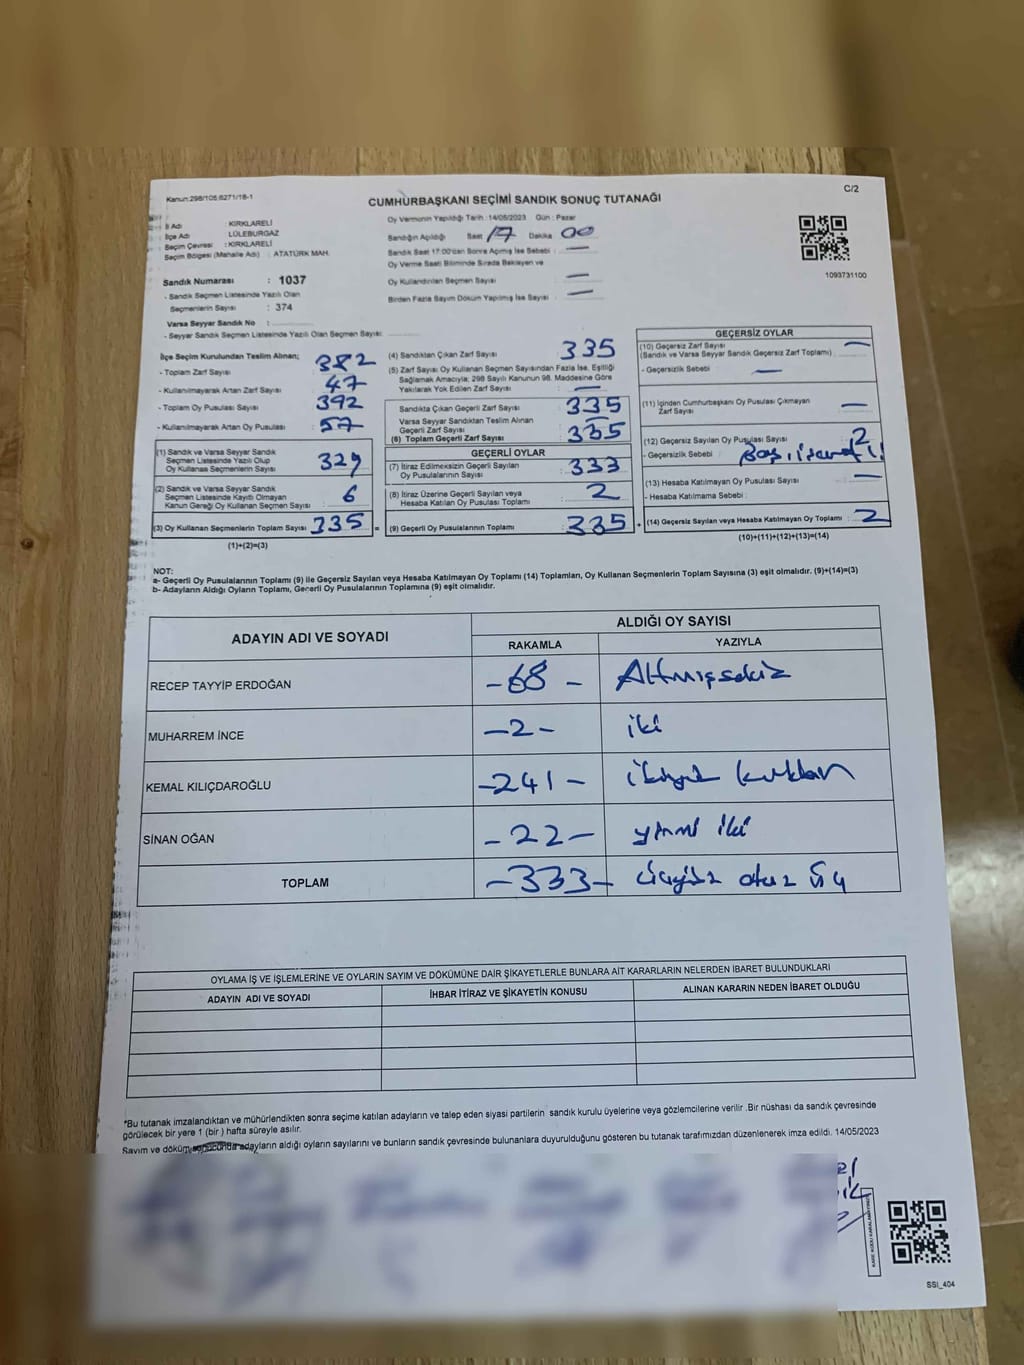 Kanun:298/105:6271/18-1
CUMHURBAŞKANI SEÇİMİ SANDIK SONUÇ TUTANAĞI
C/2
İl Adı : KIRKLARELİ
İlçe Adı : LÜLEBURGAZ
Seçim Çevresi : KIRKLARELİ
Seçim Bölgesi (Mahalle Adı) : ATATÜRK MAH.
Sandık Numarası : 1037
- Sandık Seçmen Listesinde Yazılı Olan
Seçmenlerin Sayısı : 374
Varsa Seyyar Sandık No :
- Seyyar Sandık Seçmen Listesinde Yazılı Olan Seçmen Sayısı:
Oy Vermenin Yapıldığı Tarih :14/05/2023 Gün : Pazar
Sandığın Açıldığı Saat 17 Dakika 00
Sandık Saat 17:00'dan Sonra Açılmış İse Sebebi : —
Oy Verme Saati Bitiminde Sırada Bekleyen ve
Oy Kullandırılan Seçmen Sayısı : —
Birden Fazla Sayım Döküm Yapılmış İse Sayısı : —
1093731100
İlçe Seçim Kurulundan Teslim Alınan;
- Toplam Zarf Sayısı : 382
- Kullanılmayarak Artan Zarf Sayısı : 47
- Toplam Oy Pusulası Sayısı : 392
- Kullanılmayarak Artan Oy Pusulası : 57
(1) Sandık ve Varsa Seyyar Sandık
Seçmen Listesinde Yazılı Olup
Oy Kullanan Seçmenlerin Sayısı : 329
(2) Sandık ve Varsa Seyyar Sandık
Seçmen Listesinde Kayıtlı Olmayan
Kanun Gereği Oy Kullanan Seçmen Sayısı : 6
(3) Oy Kullanan Seçmenlerin Toplam Sayısı : 335 =
(1)+(2)=(3)
(4) Sandıktan Çıkan Zarf Sayısı : 335
(5) Zarf Sayısı Oy Kullanan Seçmen Sayısından Fazla İse, Eşitliği
Sağlamak Amacıyla; 298 Sayılı Kanunun 98. Maddesine Göre
Yakılarak Yok Edilen Zarf Sayısı : —
Sandıkta Çıkan Geçerli Zarf Sayısı : 335
Varsa Seyyar Sandıktan Teslim Alınan
Geçerli Zarf Sayısı
(6) Toplam Geçerli Zarf Sayısı : 335
GEÇERLİ OYLAR
(7) İtiraz Edilmeksizin Geçerli Sayılan
Oy Pusulalarının Sayısı : 333
(8) İtiraz Üzerine Geçerli Sayılan veya
Hesaba Katılan Oy Pusulası Toplamı : 2
(9) Geçerli Oy Pusulalarının Toplamı : 335 +
GEÇERSİZ OYLAR
(10) Geçersiz Zarf Sayısı : —
(Sandık ve Varsa Seyyar Sandık Geçersiz Zarf Toplamı)
- Geçersizlik Sebebi : —
(11) İçinden Cumhurbaşkanı Oy Pusulası Çıkmayan
Zarf Sayısı : —
(12) Geçersiz Sayılan Oy Pusulası Sayısı : 2
- Geçersizlik Sebebi :
(13) Hesaba Katılmayan Oy Pusulası Sayısı : —
- Hesaba Katılmama Sebebi :
(14) Geçersiz Sayılan veya Hesaba Katılmayan Oy Toplamı : 2
(10)+(11)+(12)+(13)=(14)
NOT:
a- Geçerli Oy Pusulalarının Toplamı (9) ile Geçersiz Sayılan veya Hesaba Katılmayan Oy Toplamı (14) Toplamları, Oy Kullanan Seçmenlerin Toplam Sayısına (3) eşit olmalıdır. (9)+(14)=(3)
b- Adayların Aldığı Oyların Toplamı, Geçerli Oy Pusulalarının Toplamına (9) eşit olmalıdır.
ADAYIN ADI VE SOYADI
ALDIĞI OY SAYISI
RAKAMLA YAZIYLA
RECEP TAYYİP ERDOĞAN -68- Altmışsekiz
MUHARREM İNCE -2- iki
KEMAL KILIÇDAROĞLU -241- ikiyüz
SİNAN OĞAN -22- yirmi iki
TOPLAM -333- üçyüz otuz üç
OYLAMA İŞ VE İŞLEMLERİNE VE OYLARIN SAYIM VE DÖKÜMÜNE DAİR ŞİKAYETLERLE BUNLARA AİT KARARLARIN NELERDEN İBARET BULUNDUKLARI
ADAYIN ADI VE SOYADI İHBAR İTİRAZ VE ŞİKAYETİN KONUSU ALINAN KARARIN NEDEN İBARET OLDUĞU
*Bu tutanak imzalandıktan ve mühürlendikten sonra seçime katılan adayların ve talep eden siyasi partilerin sandık kurulu üyelerine veya gözlemcilerine verilir .Bir nüshası da sandık çevresinde
görülecek bir yere 1 (bir ) hafta süreyle asılır.
Sayım ve döküm sonucunda adayların aldığı oyların sayılarını ve bunların sandık çevresinde bulunanlara duyurulduğunu gösteren bu tutanak tarafımızdan düzenlenerek imza edildi. 14/05/2023
SSI_404